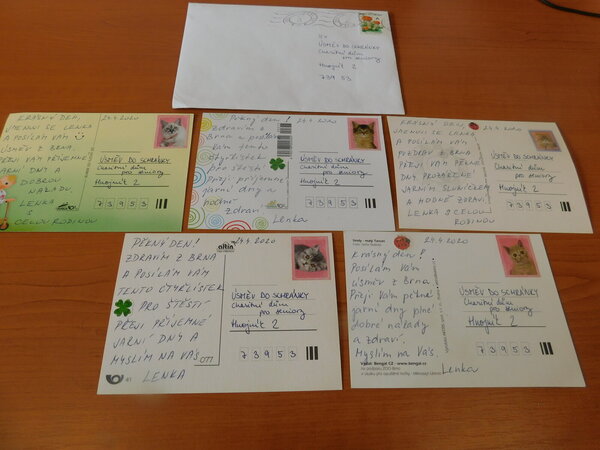 ÚSMĚV DO SCHRÁNKY
Charitní dům
pro seniory
Hnojník 2
739 53
KRÁSNÝ DEN,
JMENUJI SE LENKA
A POSÍLÁM VÁM
ÚSMĚV Z BRNA.
PŘEJI VÁM PŘÍJEMNÉ
JARNÍ DNY A
DOBROU
NÁLADU
LENKA
S
CELOU RODINOU
29.4.2020
ÚSMĚV DO SCHRÁNKY
Charitní dům
pro seniory
Hnojník 2
73953
Pěkný den!
zdravím z
Brna a posílám
Vám tento
čtyřlístek
pro štěstí.
Přeji příjemné
jarní dny a
hodně
zdraví
Lenka
29.4.2020
ÚSMĚV DO SCHRÁNKY
Charitní dům
pro seniory
Hnojník 2
73953
KRÁSNÝ DEN,
JMENUJI SE
LENKA A
POSÍLÁM VÁM
POZDRAV Z BRNA.
PŘEJI VÁM PĚKNÉ
DNY PROZÁŘENÉ
JARNÍM SLUNÍČKEM
A HODNĚ ZDRAVÍ.
LENKA S CELOU
RODINOU
29.4.2020
ÚSMĚV DO SCHRÁNKY
Charitní dům
pro seniory
Hnojník 2
73953
PĚKNÝ DEN!
ZDRAVÍM Z BRNA
A POSÍLÁM VÁM
TENTO ČTYŘLÍSTEK
PRO ŠTĚSTÍ
PŘEJI PŘÍJEMNÉ
JARNÍ DNY A
MYSLÍM NA VÁS
LENKA
41
altin
29.4.2020
ÚSMĚV DO SCHRÁNKY
Charitní dům
pro seniory
Hnojník 2
73953
Krásný den!
Posílám Vám
úsměv z Brna.
Přeji Vám pěkné
jarní dny plné
dobré nálady
a zdraví.
Myslím na Vás
Lenka
29.4.2020
ÚSMĚV DO SCHRÁNKY
Charitní dům
pro seniory
Hnojník 2
73953